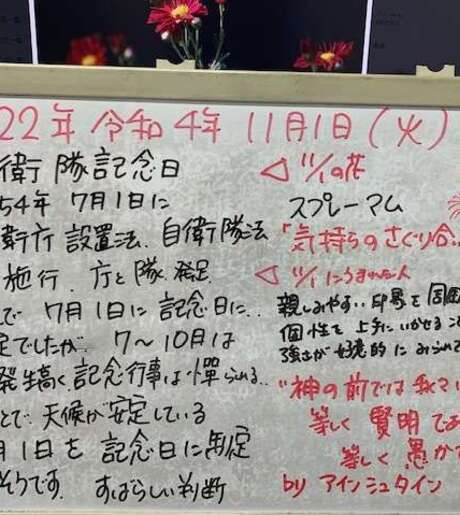 22年 令和4年 11月1日(火)
衛隊記念日
54年 7月1日に
衛庁設置法、自衛隊法
施行、庁と隊、発足
で 7月1日に記念日に..
定でしたが、7〜10月は
発生高く記念行事は憚られる..
とで、天候が安定している
月1日を記念日に
そうです。すばらしい判断
◁ 11/1の花
スプレーマム
「気持ちのさぐり合
◁ 11/1にうまれた人
親しみやすい印象を周囲
個性を上手にいかせるこ
強さが好機的にみられて
"神の前では我々
等しく 賢明であ
等しく 愚かで
by アインシュタイン